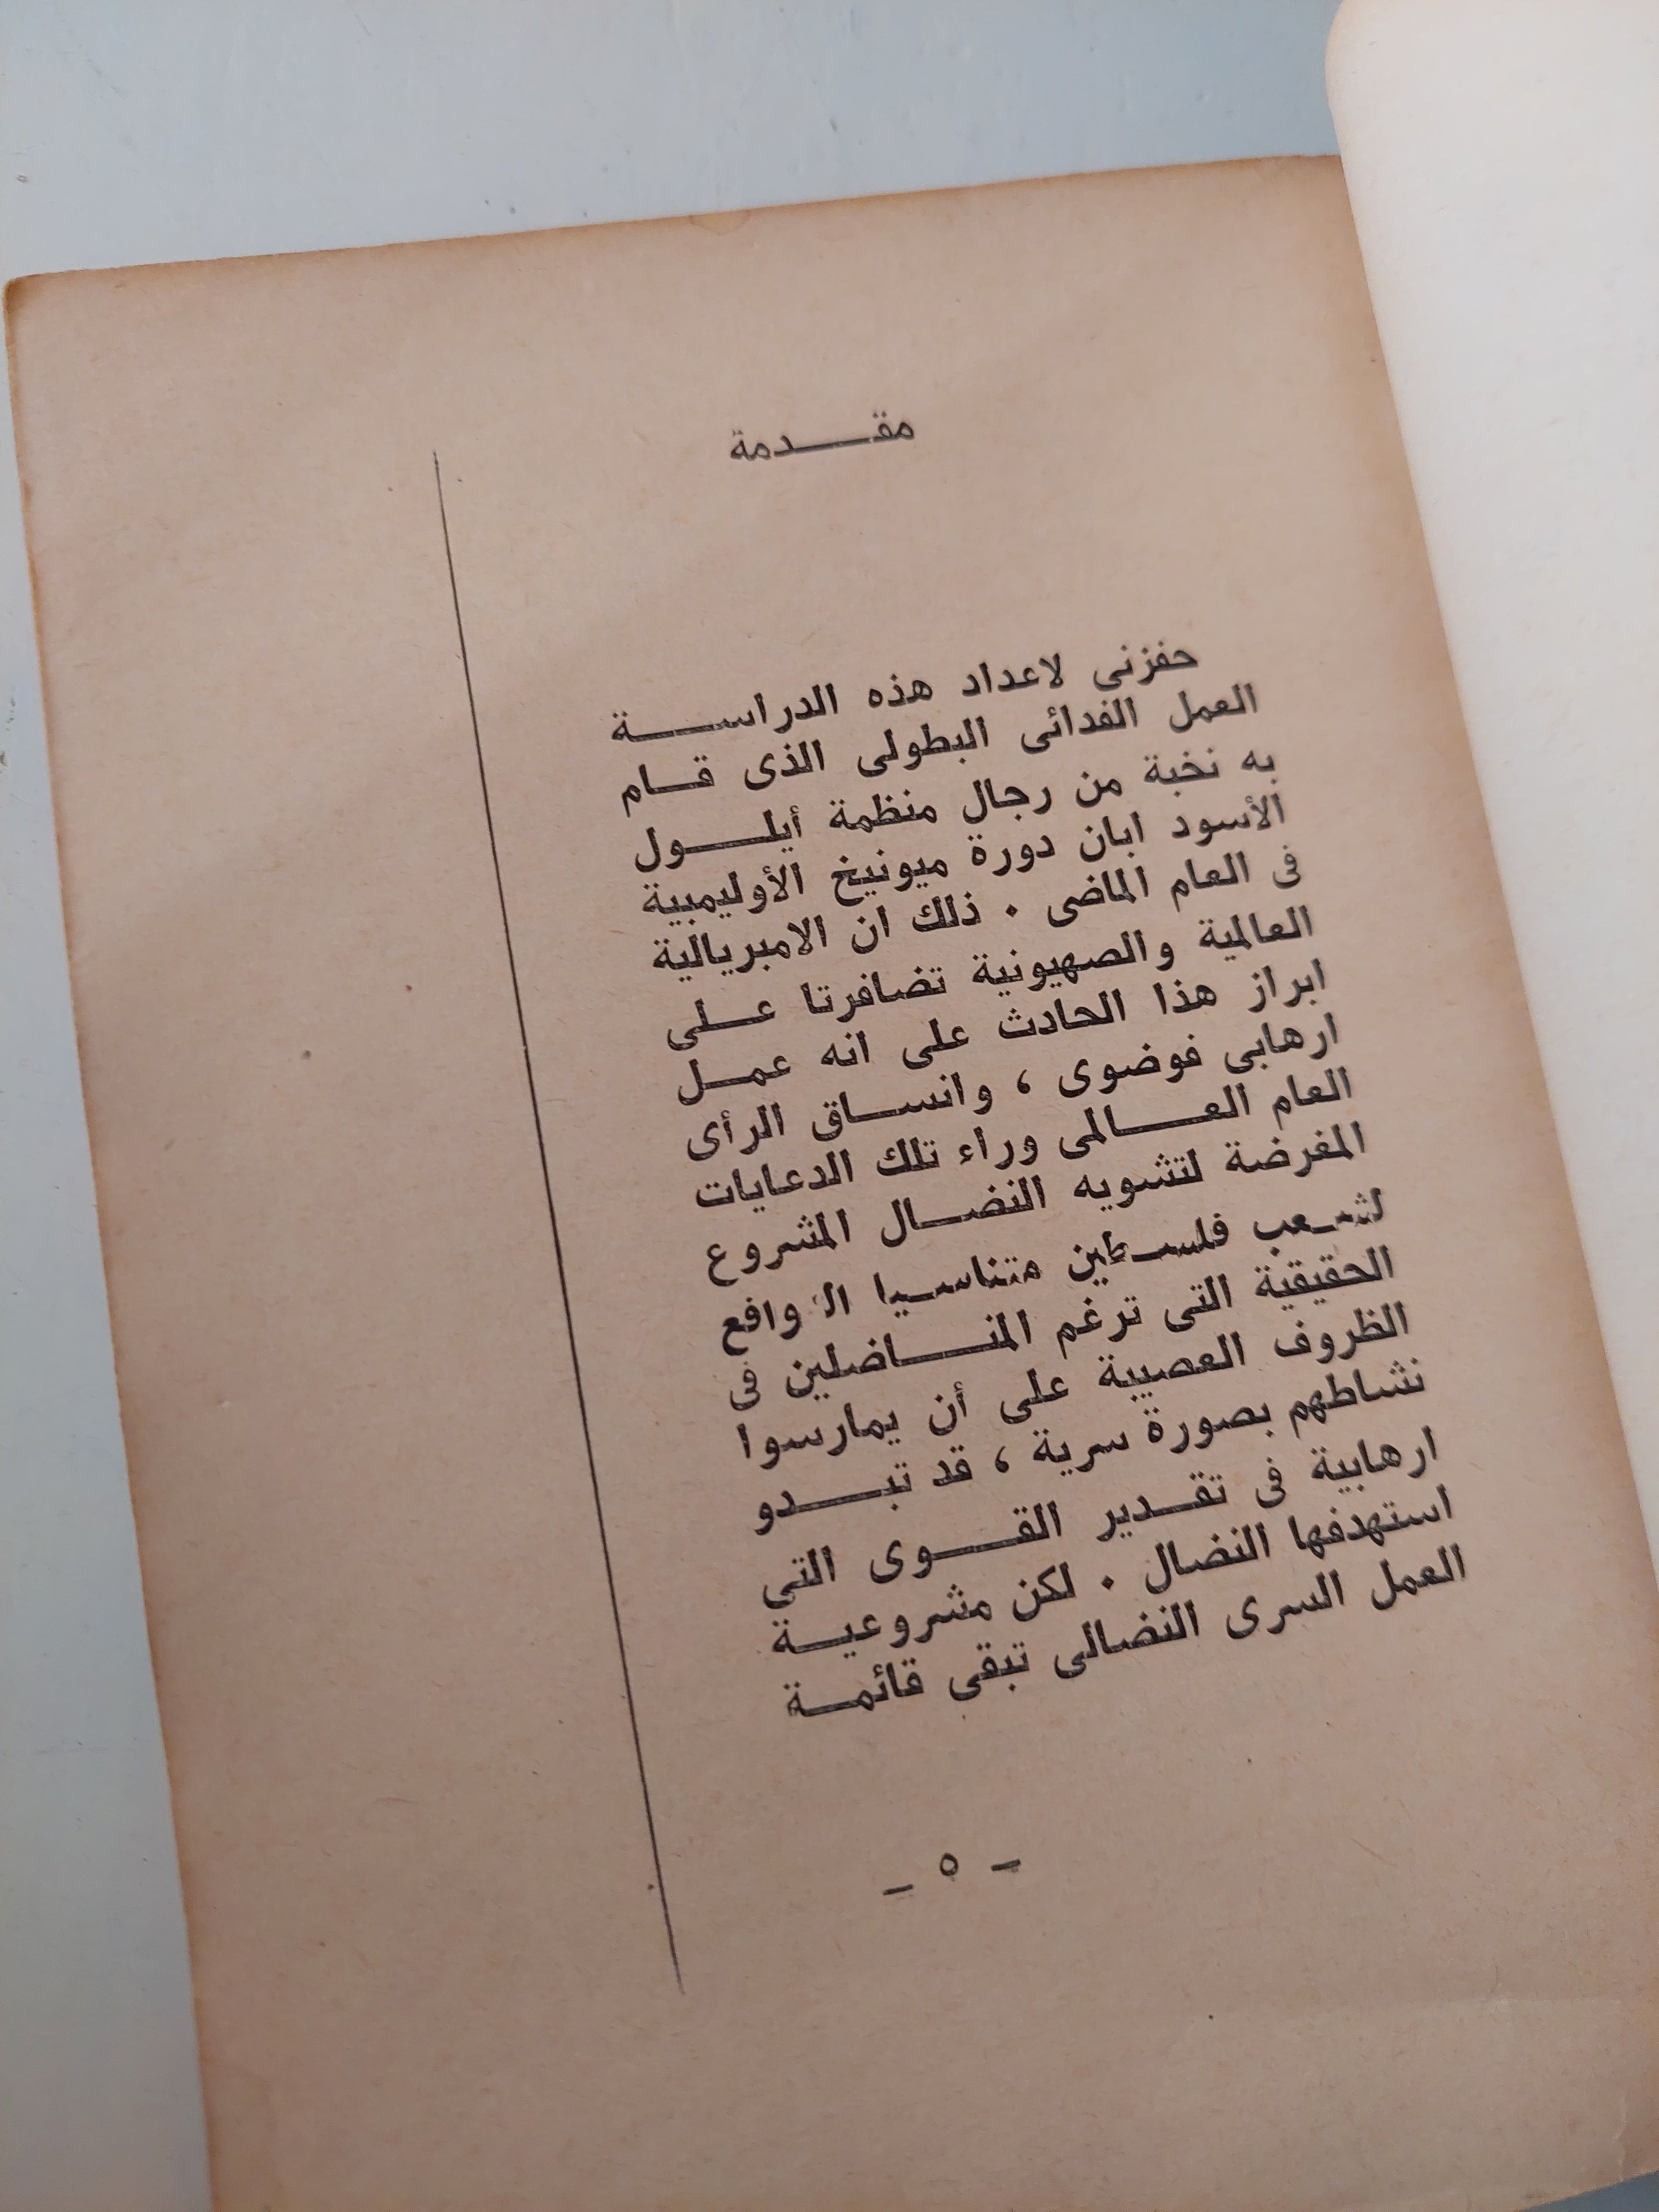 مقدمة
حفزنى لاعداد هذه الدراسة
العمل الفدائى البطولى الذى قام
به نخبة من رجال منظمة أيلول
الأسود ابان دورة ميونيخ الأوليمبية
فى العام الماضى . ذلك ان الامبريالية
العالمية والصهيونية تضافرتا على
ابراز هذا الحادث على انه عمل
ارهابى فوضوى ، وانساق الرأى
العام العالمى وراء تلك الدعايات
المغرضة لتشويه النضال المشروع
لشعب فلسطين متناسيا الدوافع
الحقيقية التى ترغم المناضلين فى
الظروف العصيبة على أن يمارسوا
نشاطهم بصورة سرية ، قد تبدو
ارهابية فى تقدير القوى التي
استهدفها النضال . لكن مشروعية
العمل السرى النضالى تبقى قائمة
– ٥ –